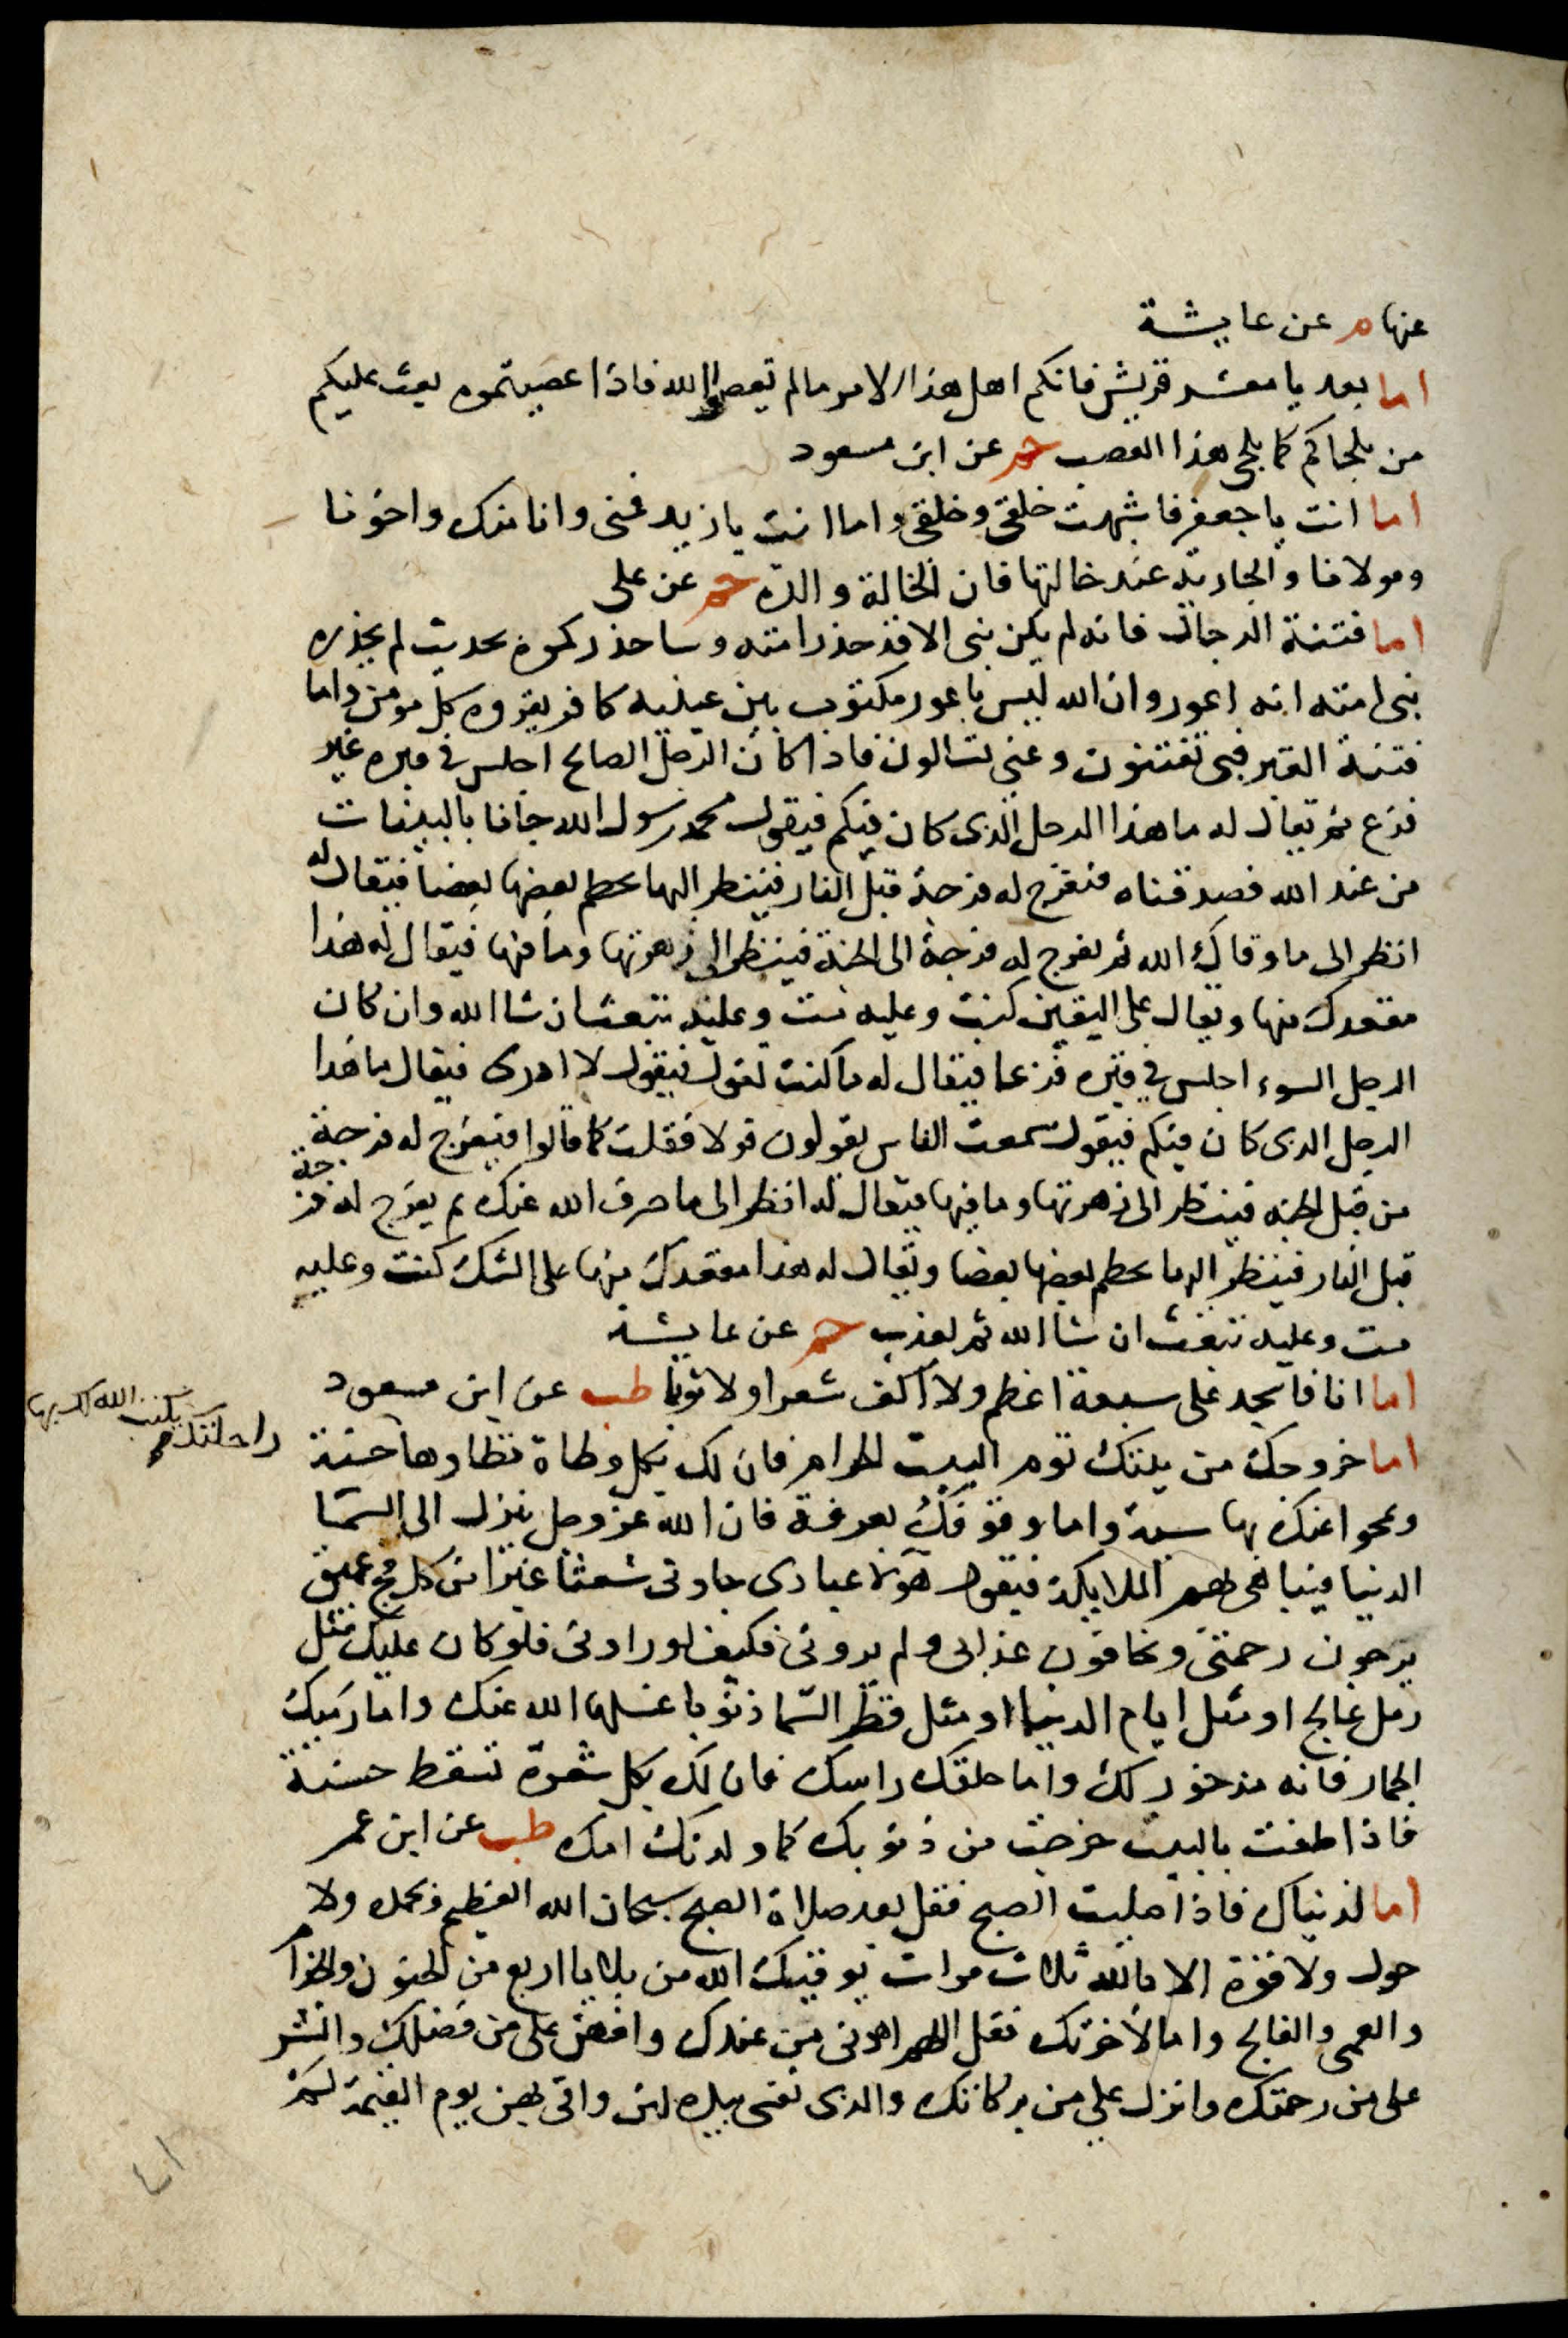 عنها م عن عايشة
اما بعد يا معشر قريش فانكم اهل هذا الامر ما لم تعصوا الله فاذا عصيتموه بعث عليكم
من يلحاكم كما يلحى هذا القصب حم عن ابن مسعود
اما انت يا جعفر فاشبهت خلقى وخلقى واما انت يا زيد فمنى وانا منك واخونا
ومولانا والجارية عند خالتها فان الخالة والدة حم عن على
اما فتنة الدجال فانه لم يكن نبى الا قد حذر امته وساحذركموه بحديث لم يحذره
نبى امته انه اعور وان الله ليس باعور مكتوب بين عينيه كافر يقروه كل مومن واما
فتنة القبر فبى تفتنون وعنى تسالون فاذا كان الرجل الصالح اجلس فى قبره غير
فزع ثم يقال له ما هذا الرجل الذى كان فيكم فيقول محمد رسول الله جانا بالبينات
من عند الله فصدقناه فيفرج له فرجة قبل النار فينظر اليها يحطم بعضها بعضا فيقال له
انظر الى ما وقاك الله ثم يفرج له فرجة الى الجنة فينظر الى زهرتها وما فيها فيقال له هذا
مقعدك منها ويقال على اليقين كنت وعليه مت وعليه تبعث ان شا الله وان كان
الرجل السوء اجلس فى قبره فزعا فيقال له ما كنت تقول فيقول لا ادرى فيقال ما هذا
الرجل الذى كان فيكم فيقول سمعت الناس يقولون قولا فقلت كما قالوا فيفرج له فرجة
من قبل الجنه فينظر الى زهرتها وما فيها فيقال له انظر الى ما صرف الله عنك ثم يفرج له فرجة
قبل النار فينظر اليها يحطم بعضها بعضا ويقال له هذا مقعدك منها على الشك كنت وعليه
مت وعليه تبعث ان شا الله ثم يعذب حم عن عايشة
اما انا فاسجد على سبعة اعظم ولا اكف شعرا ولا ثوبا طب عن ابن مسعود
اما خروجك من بيتك توم البيت الحرام فان لك بكل وطاة تطاوها حسنة
راحلتك يكتب الله لك بها
وتمحوا عنك بها سيئة واما وقوفك بعرفة فان الله عز وجل ينزل الى السما
الدنيا فيباهى بهم الملايكة فيقول هولا عبادى جاونى شعثا غبرا من كل فج عميق
يرجون رحمتى ويخافون عذابى ولم يرونى فكيف لو راونى فلو كان عليك مثل
رمل عالج او مثل ايام الدنيا او مثل قطر السما ذنوبا غسلها الله عنك واما رميك
الجمار فانه مذخور لك واما حلقك راسك فان لك بكل شعرة تسقط حسنة
فاذا طفت بالبيت خرجت من ذنوبك كما ولدتك امك طب عن ابن عمر
اما لدنياك فاذا صليت الصبح فقل بعد صلاة الصبح سبحان الله العظيم وبحمده ولا
حول ولا قوة الا بالله ثلاث مرات يوقيك الله من بلايا اربع من الجنون والجذام
والعمى والفالج واما لاخرتك فقل اللهم اهدنى من عندك وافض على من فضلك وانشر
على من رحمتك وانزل على من بركاتك والذى نفسى بيده لئن وافى بهن يوم القيمة لم